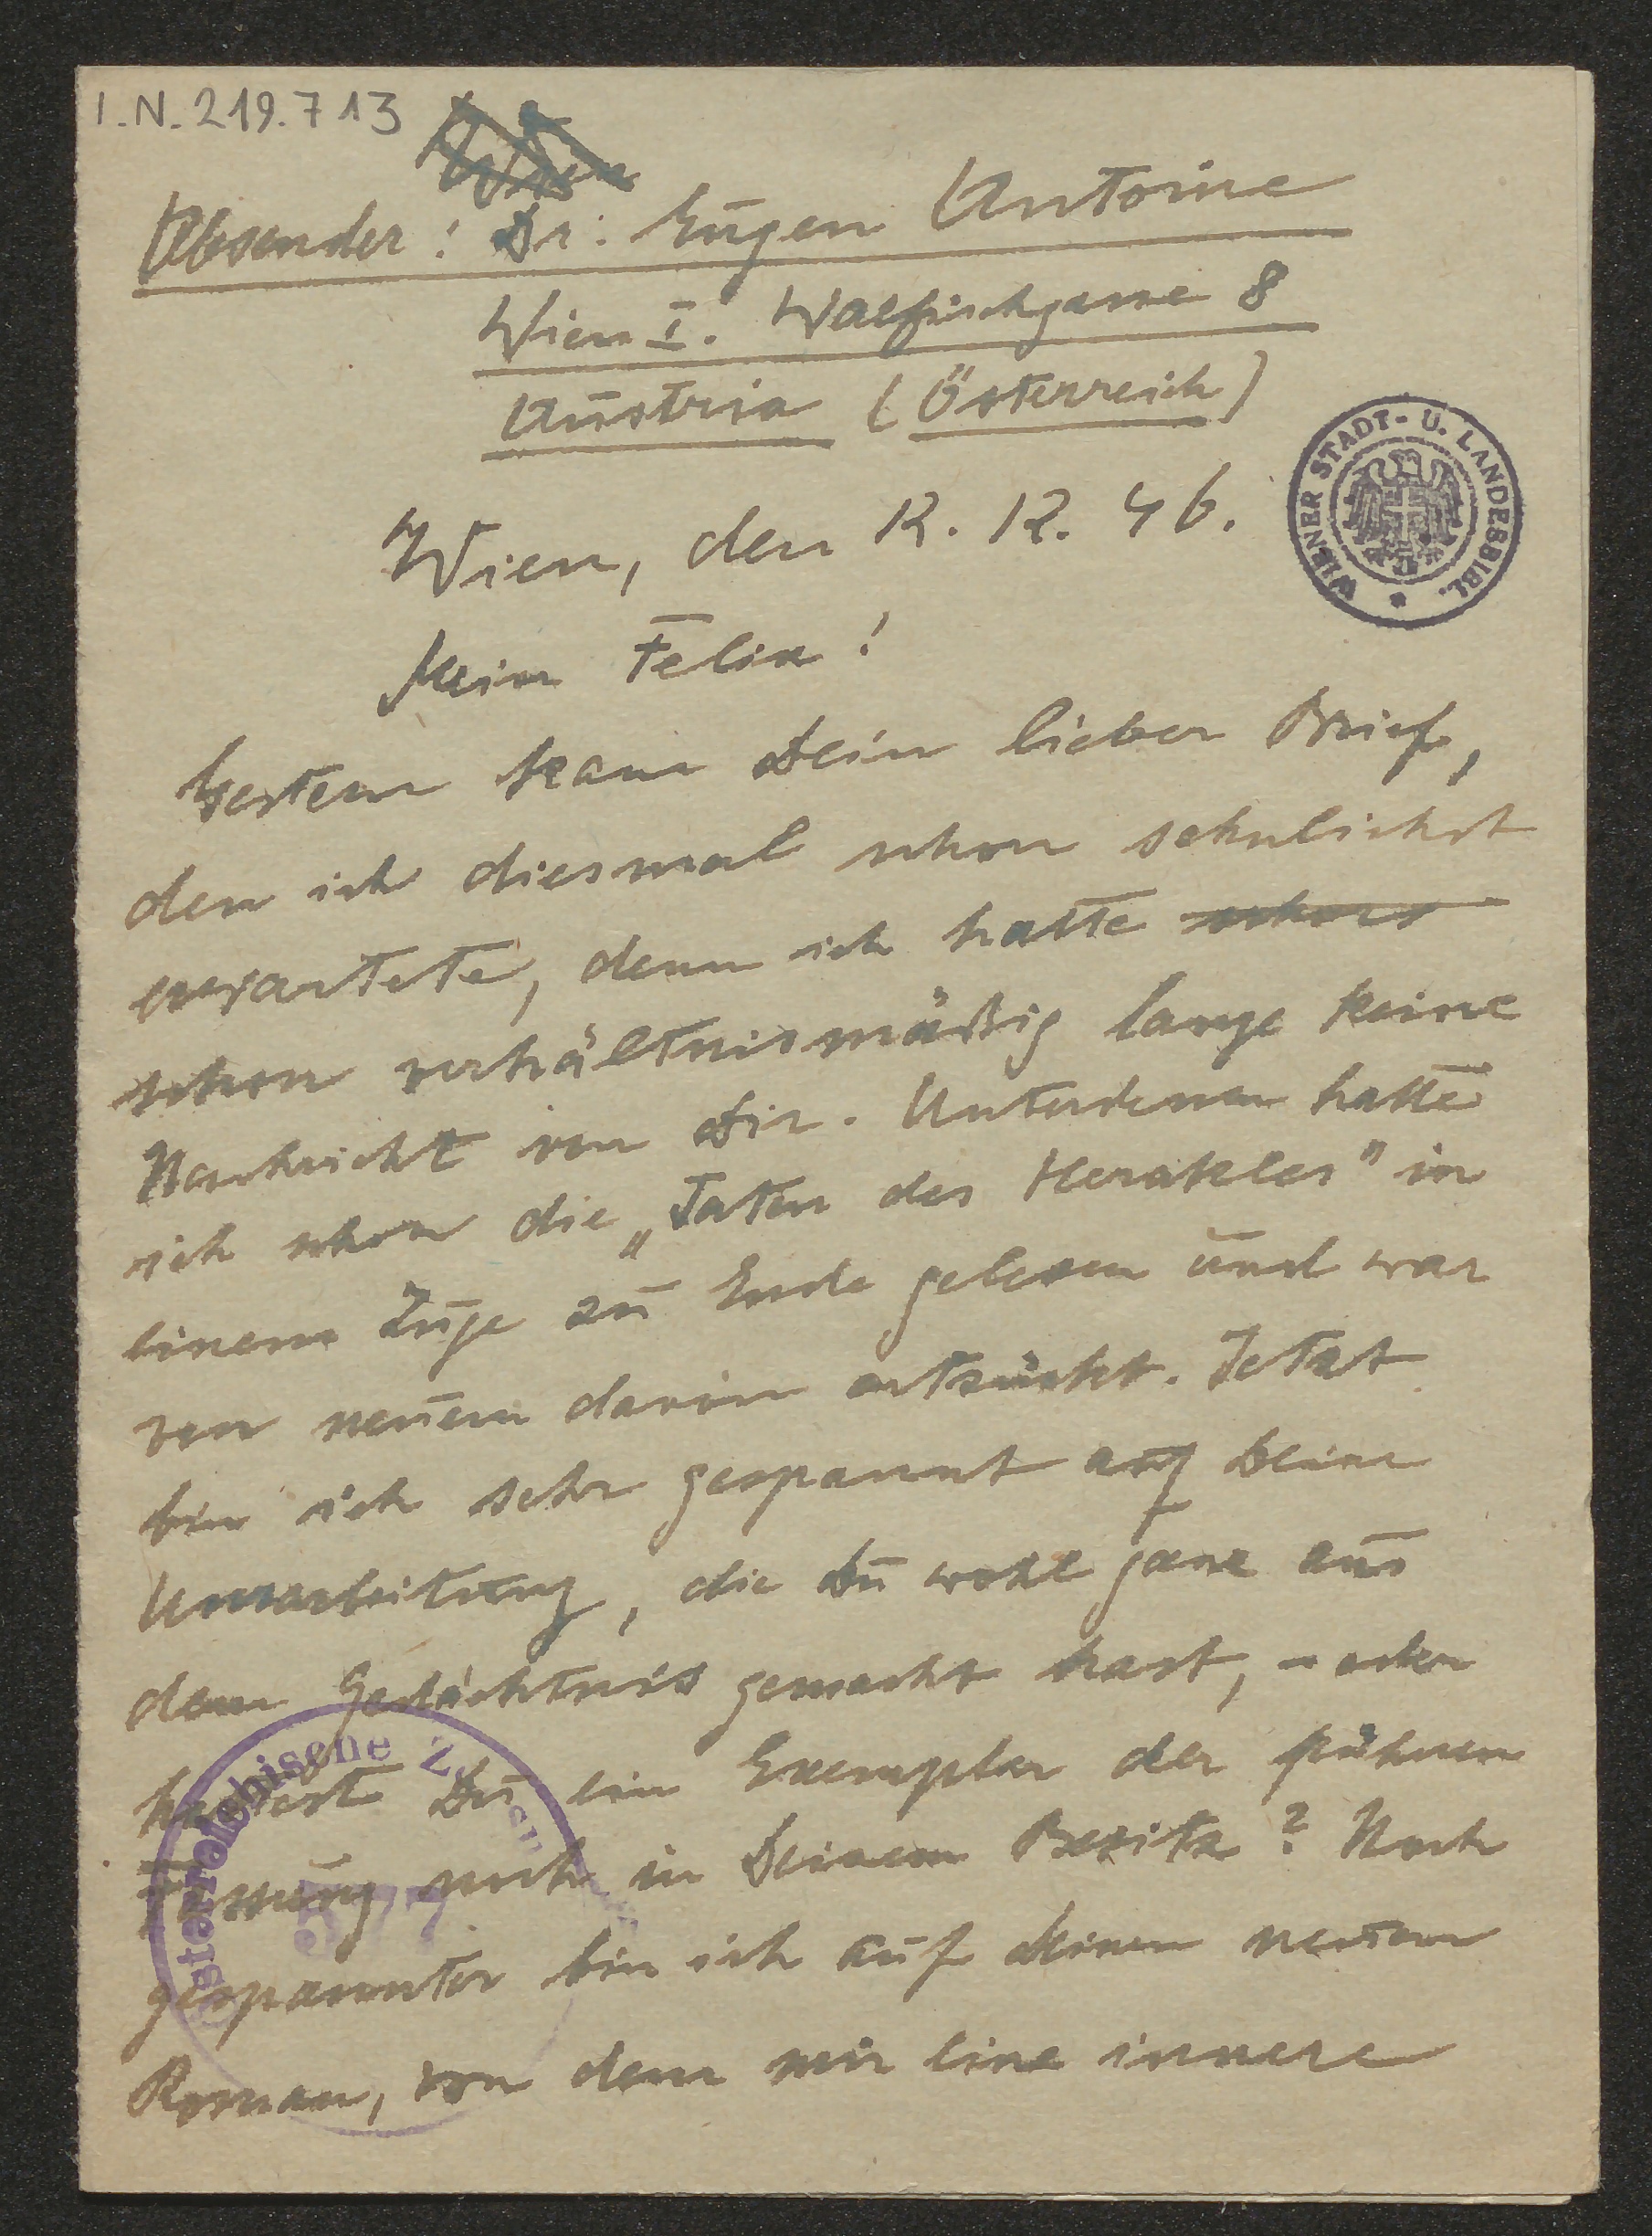 I.N. 219.713
Wien
Absender: Dr. Eugen Antoine
Wien I. Walfischgasse 8
Austria (Österreich)
WIENER STADT- U. LANDESBIBL.
Wien, den 12. 12. 46.
Mein Felix!
Gestern kam Dein lieber Brief,
den ich diesmal schon sehnlichst
erwartete, denn ich hatte schon
schon verhältnismäßig lange keine
Nachricht von Dir. Unterdessen hatte
ich schon die „Taten des Herakles" in
einem Zuge zu Ende gelesen und war
von neuem davon entzückt. Jetzt
bin ich sehr gespannt auf Deine
Umarbeitung, die Du wohl ganz aus
dem Gedächtnis gemacht hast, – oder
hattest Du ein Exemplar der frühren
Fassung noch in Deinem Besitz? Noch
gespannter bin ich auf deinen neuen
Roman, von dem mir eine innere
Österreichische Z
577